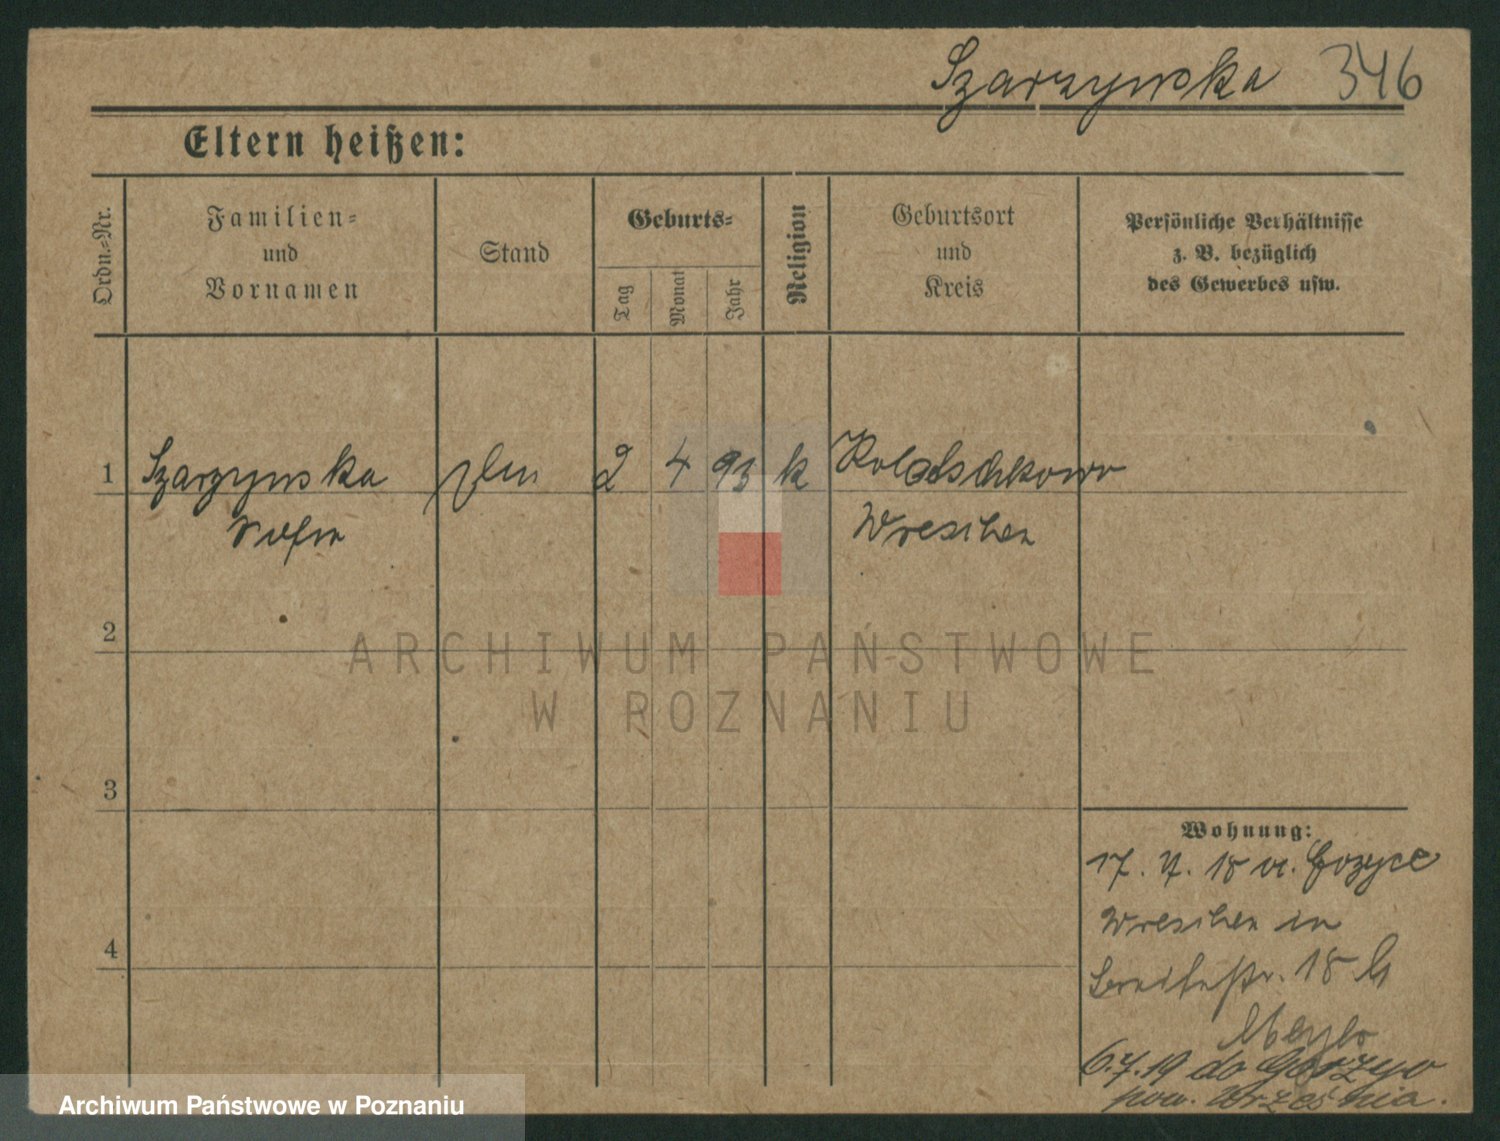 Szarzynska 346
Eltern heißen:
Ordn.-Nr.
Familien-
und
Vornamen
Stand
Geburts-
Tag
Monat
Jahr
Religion
Geburtsort
und
Kreis
Persönliche Verhältnisse
z. B. bezüglich
des Gewerbes usw.
1 Szarzynska 2 4 93 k
Wreschen
ARCHIWUM PAŃSTWOWE
W POZNANIU
2
3
4
Wohnung:
17. 7. 18 v.
Wreschen in
Breitestr. 18 b
6.7.19 do Gorzyc
pow. Września.
Archiwum Państwowe w Poznaniu